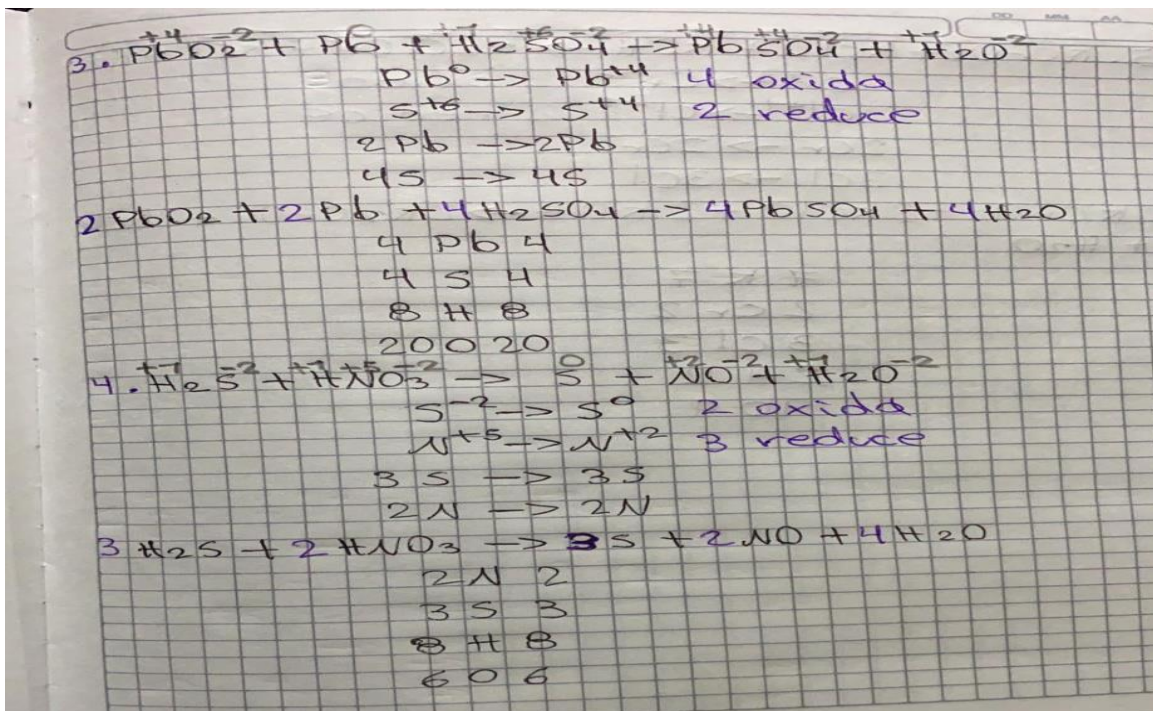 3. Pb⁺⁴O₂⁻² + Pb + H₂⁺¹S⁺⁶O₄⁻² -> Pb⁺⁴S⁺⁴O₄⁻² + H₂⁺¹O⁻²
Pb⁰ -> Pb⁺⁴ 4 oxida
S⁺⁶ -> S⁺⁴ 2 reduce
2 Pb -> 2Pb
4S -> 4S
2 PbO₂ + 2 Pb + 4 H₂SO₄ -> 4 PbSO₄ + 4H₂O
4 Pb 4
4 S 4
8 H 8
20 O 20
4. H₂⁺¹S⁻² + H⁺¹N⁺⁵O₃⁻² -> S⁰ + N⁺²O⁻² + H₂⁺¹O⁻²
S⁻² -> S⁰ 2 oxida
N⁺⁵ -> N⁺² 3 reduce
3 S -> 3S
2N -> 2N
3 H₂S + 2 HNO₃ -> 3S + 2 NO + 4 H₂O
2 N 2
3 S 3
8 H 8
6 O 6